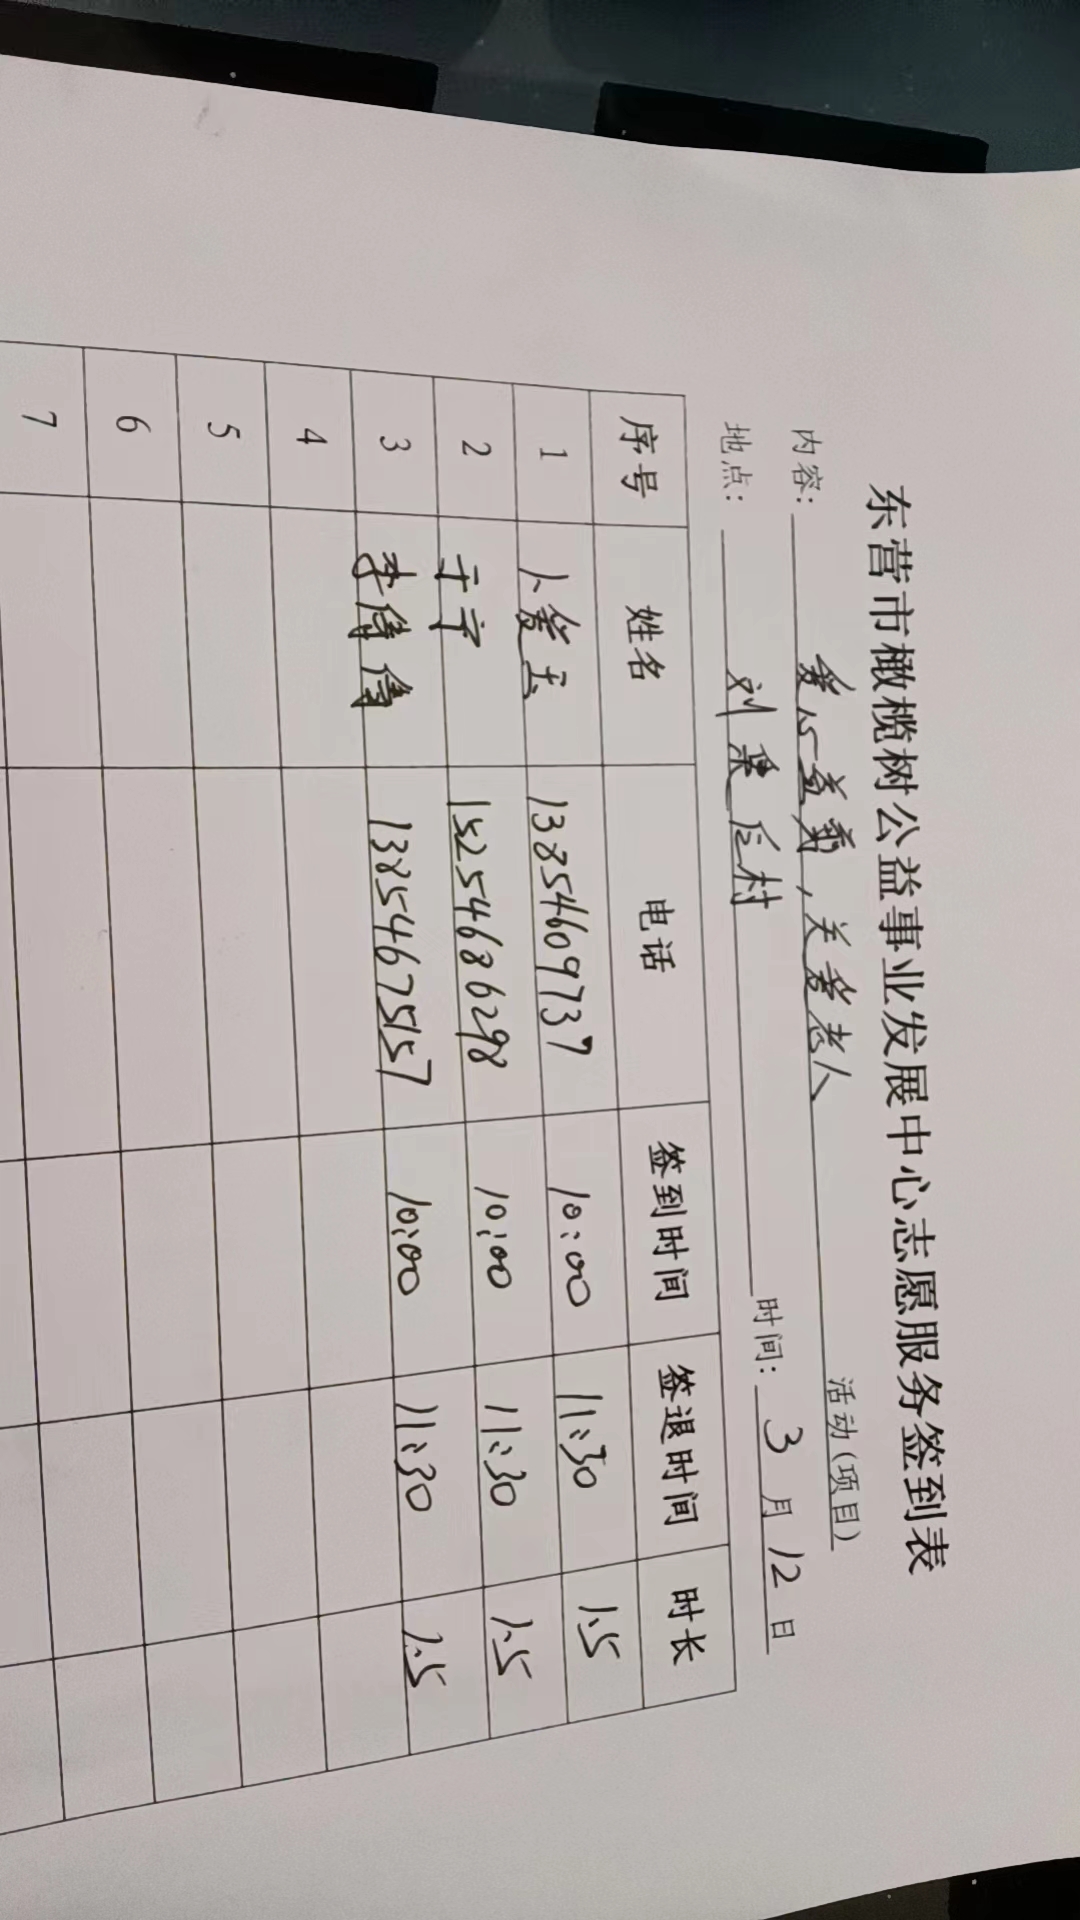 东营市橄榄树公益事业发展中心志愿服务签到表
内容: 爱心义剪,关爱老人 活动(项目)
地点: 刘集后村 时间: 3月12日
序号 姓名 电话 签到时间 签退时间 时长
1 卜爱玉 13854609737 10:00 11:30 1.5
2 于宁 15254686298 10:00 11:30 1.5
3 李倩倩 13854675157 10:00 11:30 1.5
4
5
6
7